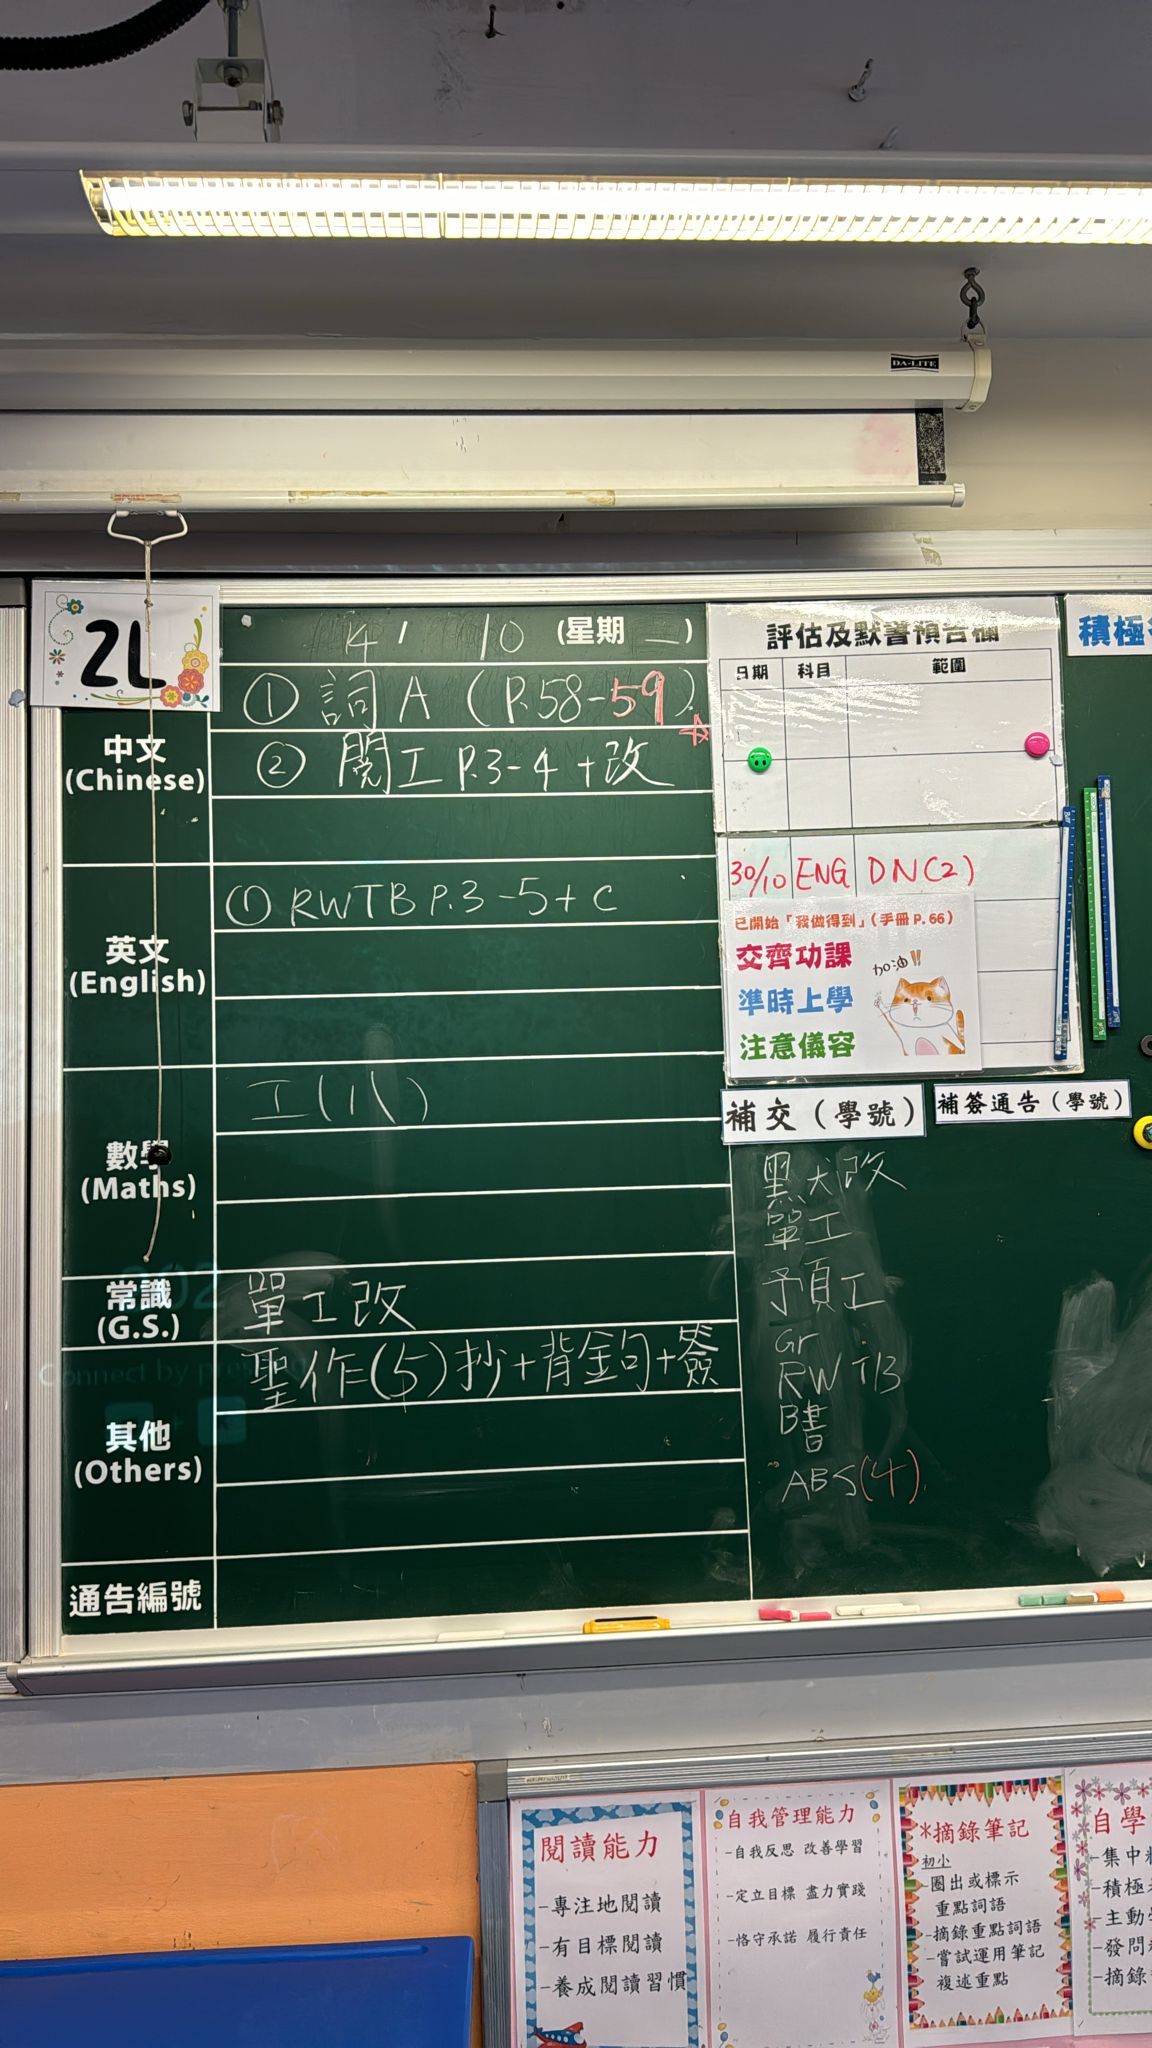 DA-LITE
2L
14 10 (星期 二)
中文
(Chinese)
① 詞 A (P.58-59)
② 閱工 P.3-4 + 改
英文
(English)
① RWTB P.3-5+C
數學
(Maths)
工(八)
常識
(G.S.)
單工改
其他
(Others)
聖作(5)抄+背金句+簽
通告編號
Connect by pres
評估及默書預告欄
日期 科目 範圍
30/10 ENG DN(2)
已開始「我做得到」(手冊 P.66)
交齊功課
準時上學
注意儀容
加油!!
補交(學號)
補簽通告(學號)
黑犬改
單工
預工
Gr
RW TB
B書
ABS(4)
積極
閱讀能力
-專注地閱讀
-有目標閱讀
-養成閱讀習慣
自我管理能力
-自我反思 改善學習
-定立目標 盡力實踐
-恪守承諾 履行責任
*摘錄筆記
初小
-圈出或標示
重點詞語
-摘錄重點詞語
-嘗試運用筆記
複述重點
自學
-集中
-積極
-主動
-發問
-摘錄